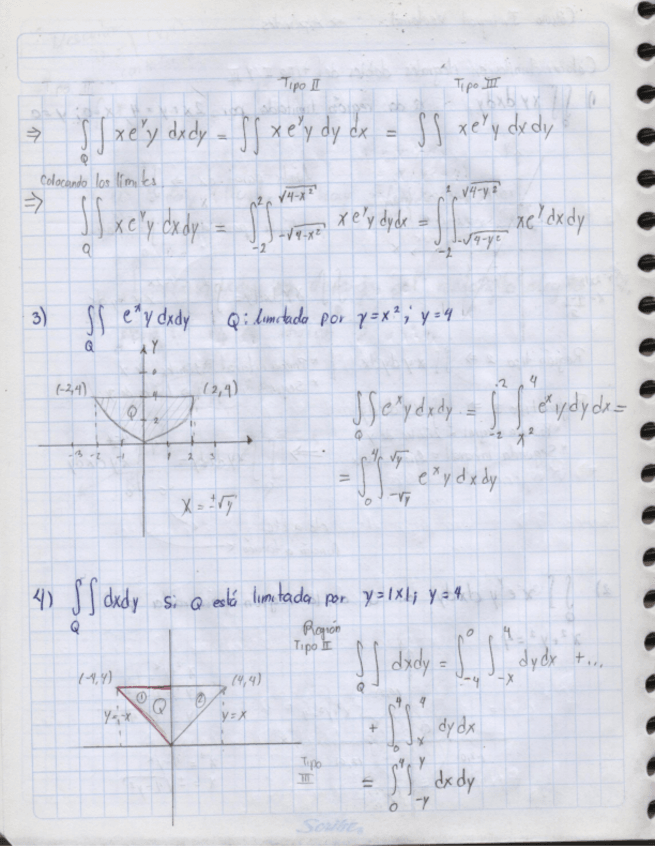 Tipo II Tipo III
⇒ ∬_Q xe^y y dxdy = ∬ xe^y y dy dx = ∬ xe^y y dxdy
Colocando los límites
⇒ ∬_Q xe^y y dxdy = ∫_{-2}^{2} ∫_{-√(4-x²)}^{√(4-x²)} xe^y y dydx = ∫_{-2}^{2} ∫_{-√(4-y²)}^{√(4-y²)} xe^y dxdy
3) ∬_Q e^x y dxdy Q: limitada por y=x²; y=4
Y
6
(-2,4) 4 (2,4)
Q 2
-3 -2 -1 1 2 3
x = ±√y
∬_Q e^x y dxdy = ∫_{-2}^{2} ∫_{x²}^{4} e^x y dy dx =
= ∫_0^4 ∫_{-√y}^{√y} e^x y dxdy
4) ∬_Q dxdy Si Q está limitada por y=|x|; y=4
Región
Tipo II
∬_Q dxdy = ∫_{-4}^{0} ∫_{-x}^{4} dydx + ...
(-4,4) (4,4)
① Q ②
y=-x y=x
+ ∫_0^4 ∫_x^4 dydx
Tipo
III
= ∫_0^4 ∫_{-y}^{y} dxdy
Scribe